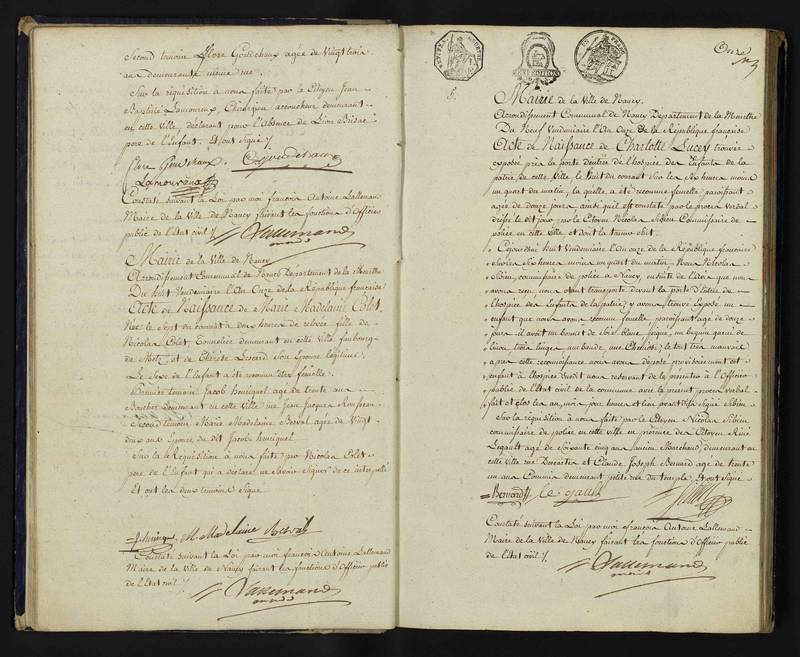 Second temoin Flore Goudchaux agée de Vingt trois
ans demeurante même rue.
Sur la réquisition à nous faite par le Citoyen Jean
Baptiste Lamoureux Chirurgien accoucheur demeurant
en cette Ville, déclarant pour l'absence de Lion
pere de l'Enfant. Et ont Signé
flore Goudchaux
Lamoureux
Constaté Suivant la Loi par moi francois Antoine Lallemand
Maire de la Ville de Nancy faisant les fonctions d'Officier
public de l'Etat civil
Lallemand
Mairie de la Ville de Nancy
Arrondissement Communal de Nancy Département de la Meurthe
Du huit Vendemiaire l'An Onze de la République française
Acte de Naissance de Marie Madelaine Colot,
Née le Sept du courant à deux heures de relevée fille de
Nicolas Colot, demeurant en cette Ville faubourg
de Metz, et de Thérèse Lienard Son Epouse légitime
Le Sexe de l'Enfant a été reconnu être femelle.
Premier temoin Jacob henriquel agé de trente ans
Boucher Demeurant en cette Ville rue Jean Jacques Rousseau
Second temoin Marie Madelaine Berval agée de Vingt
deux ans Epouse de dit Jacob henriquel
Sur la Réquisition à nous faite par Nicolas Colot
pere de l'Enfant qui a déclaré ne Savoir Signer de ce interpellé
Et ont les deux temoins Signé
M. Madelaine Berval
Constaté Suivant la Loi par moi francois Antoine Lallemand
Maire de la Ville de Nancy faisant les fonctions d'Officier public
de l'Etat civil
Lallemand
Onze
8.
Mairie de la Ville de Nancy.
Arrondissement Communal de Nancy Département de la Meurthe
Du Neuf Vendemiaire l'An Onze de la République française
Acte de Naissance de Charlotte Lucey trouvée
exposée près la porte d'entrée de l'hospice des Enfants de la
patrie de cette Ville, le huit du courant Sur les Six heures moins
un quart du matin, laquelle a été reconnue femelle, paroissant
agée de douze jours ainsi qu'il est constaté par le procès Verbal
dressé le dit jour par le Citoyen Nicolas Sibien Commissaire de
police en cette Ville et dont la teneur Suit.
Cejourd'hui huit Vendemiaire l'An onze de la République française
Sur les Six heures moins un quart du matin, Nous Nicolas
Sibien, commissaire de police à Nancy, ensuite de l'avis que nous
avons reçu, nous étant transporté devant la porte d'entrée de
l'hospice des Enfants de la patrie, y avons trouvé Exposé un
enfant que nous avons reconnu femelle paroissant agé de douze
jours, il avoit un bonnet de toile blanc, un béguin garni de
linon, trois linges, une bande, une Chemise, le tout très mauvais
après cette reconnoissance nous avons déposé provisoirement cet
enfant à l'hospice Susdit nous réservant de le présenter à l'Officier
public de l'Etat civil de la commune avec le présent procès Verbal
fait et clos les an, mois jour heures et lieu avant dits Signé Sibien
Sur la réquisition à nous faite par le Citoyen Nicolas Sibien
commissaire de police en cette Ville en présence des Citoyens Réné
Legault agé de Soixante cinq ans Marchand, demeurant en
cette Ville rue Descartes et Claude Joseph Bernard agé de trente
un ans Commis demeurant petite rue du temple, Et ont Signé
Bernard Le gault Sibien
Constaté Suivant la Loi par moi francois Antoine Lallemand
Maire de la Ville de Nancy faisant les fonctions d'Officier public
de l'Etat civil
Lallemand